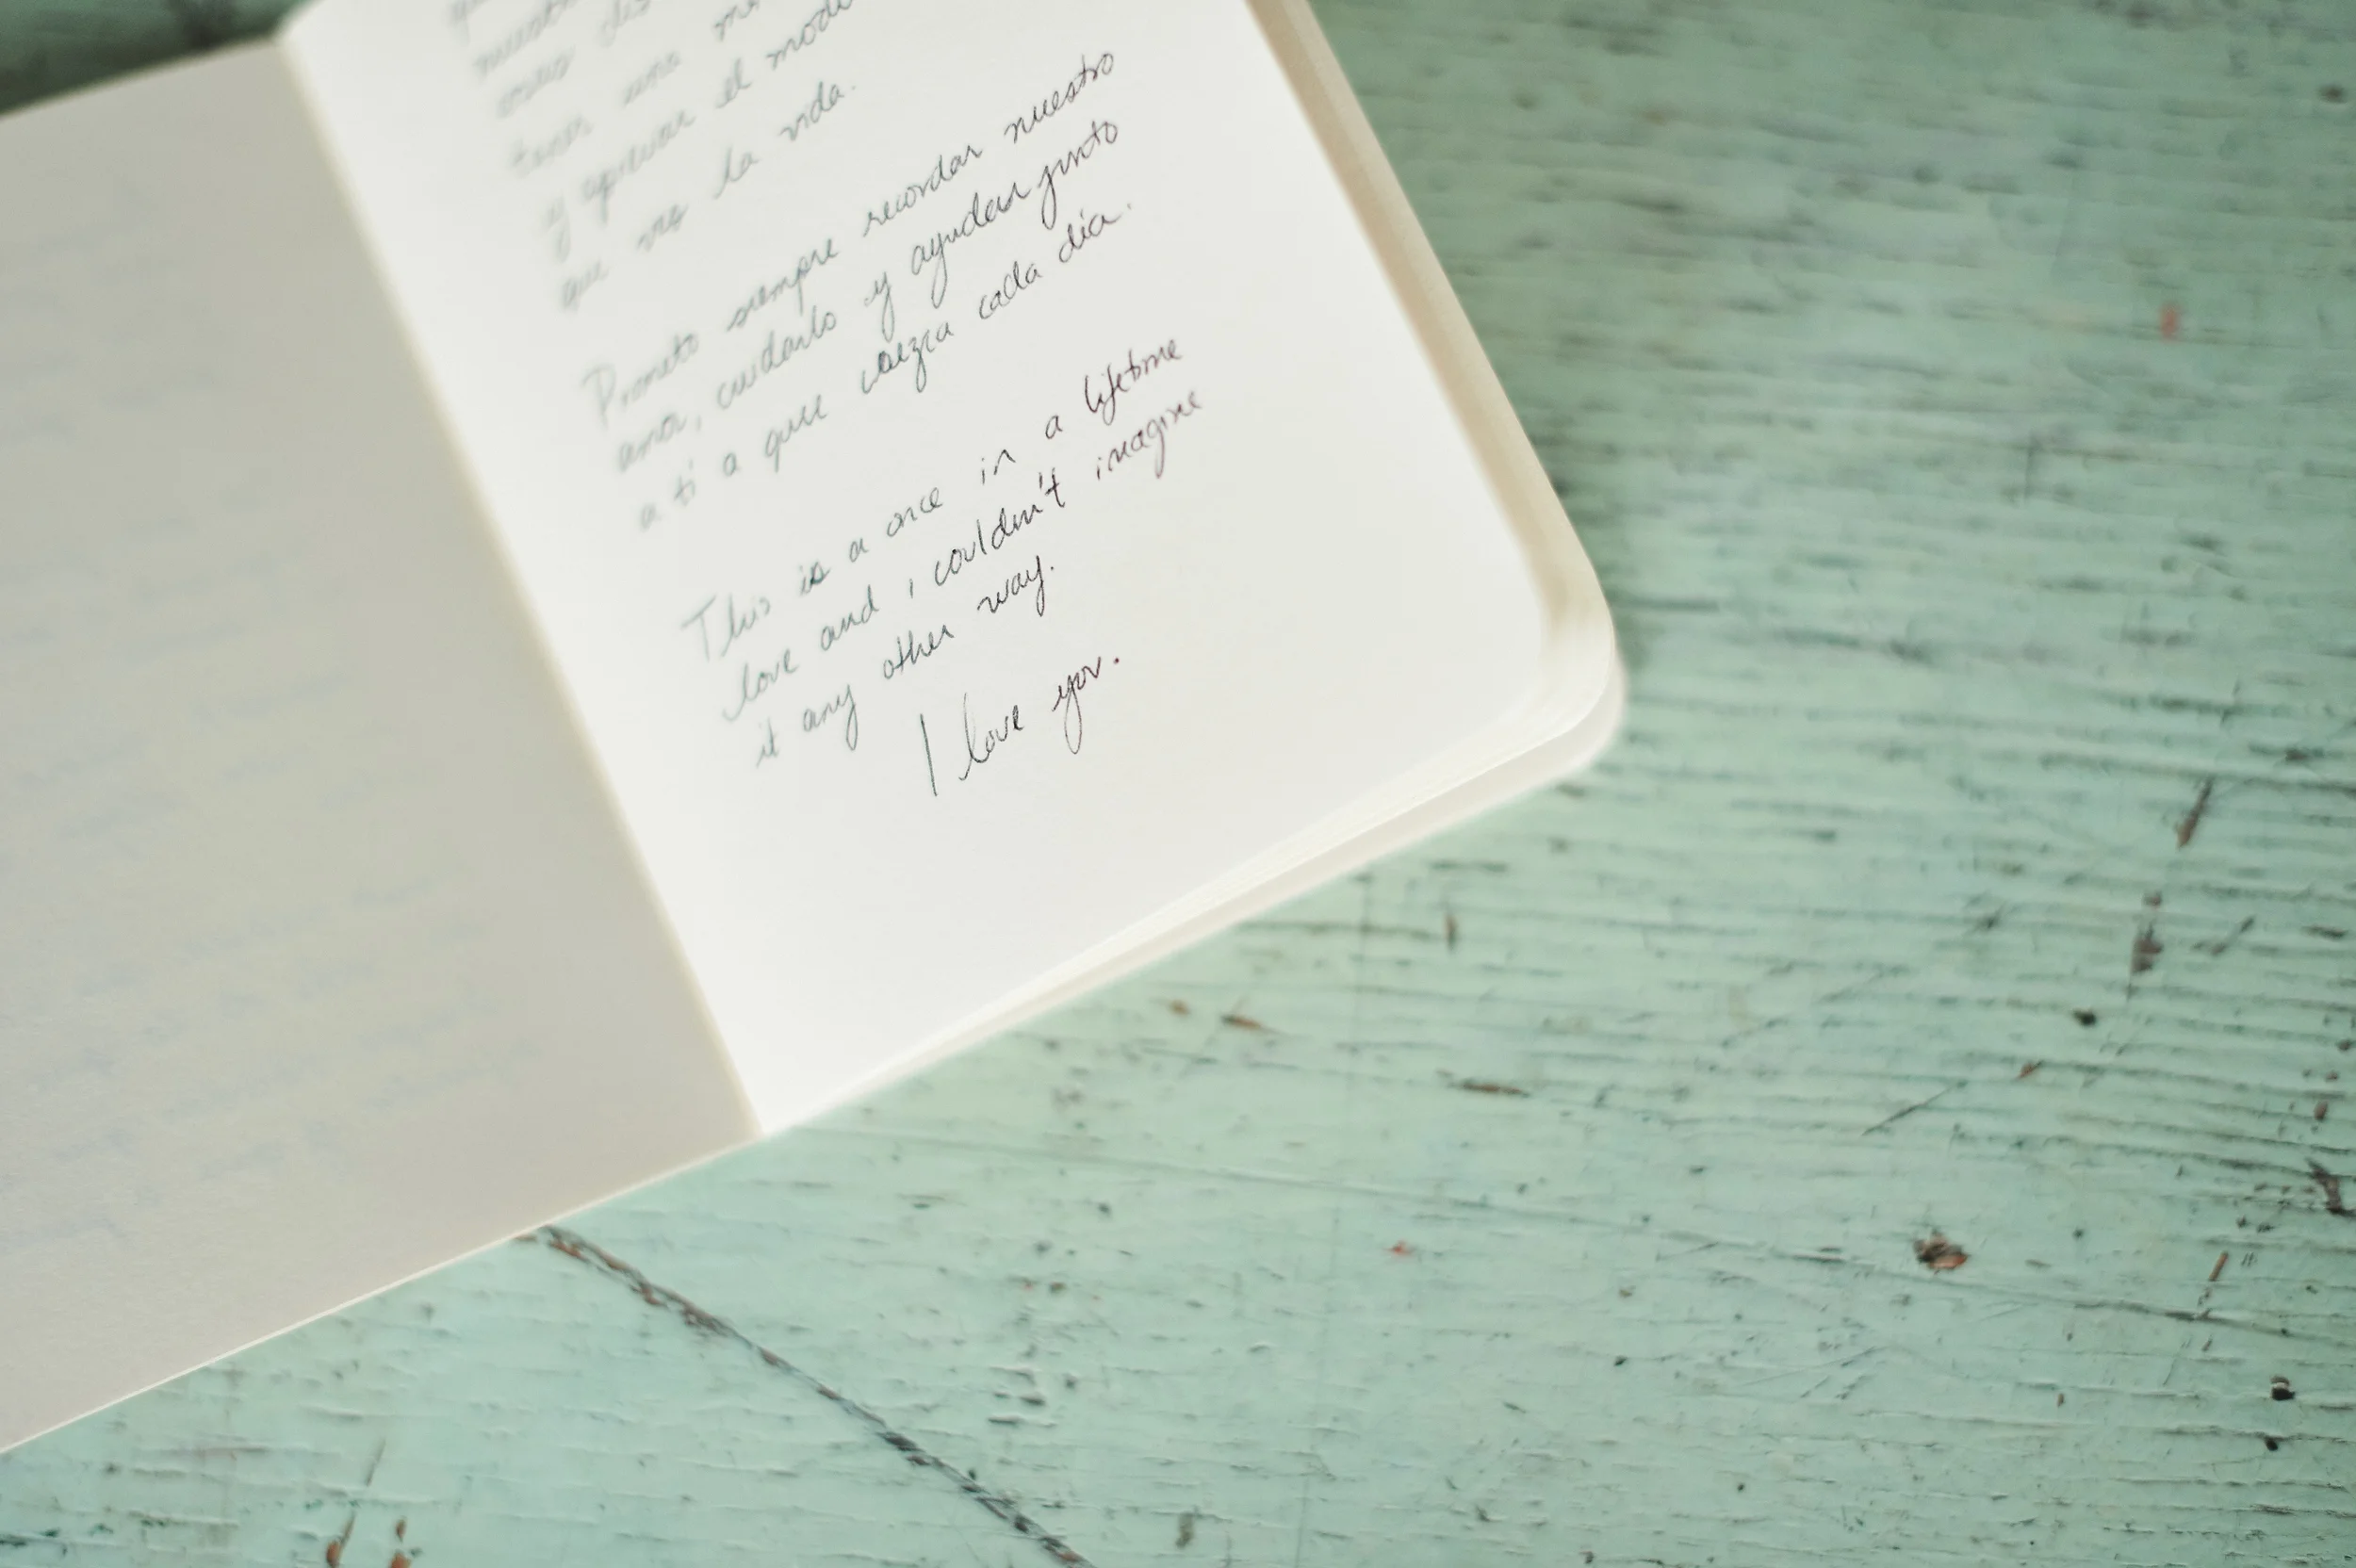 nuestr
tener una
y apreciar el modo
que ves la vida.
Prometo siempre recordar nuestro
amor, cuidarlo y ayudar junto
a ti a que crezca cada día.
This is a once in a lifetime
love and i couldn't imagine
it any other way.
I love you.